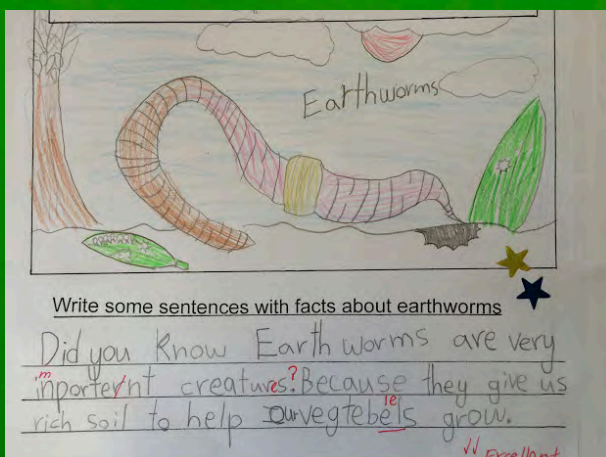 Earthworms
Write some sentences with facts about earthworms
Did you know Earth worms are very
inportent creatures? Because they give us
rich soil to help our vegtebels grow.
m
le
Excellent